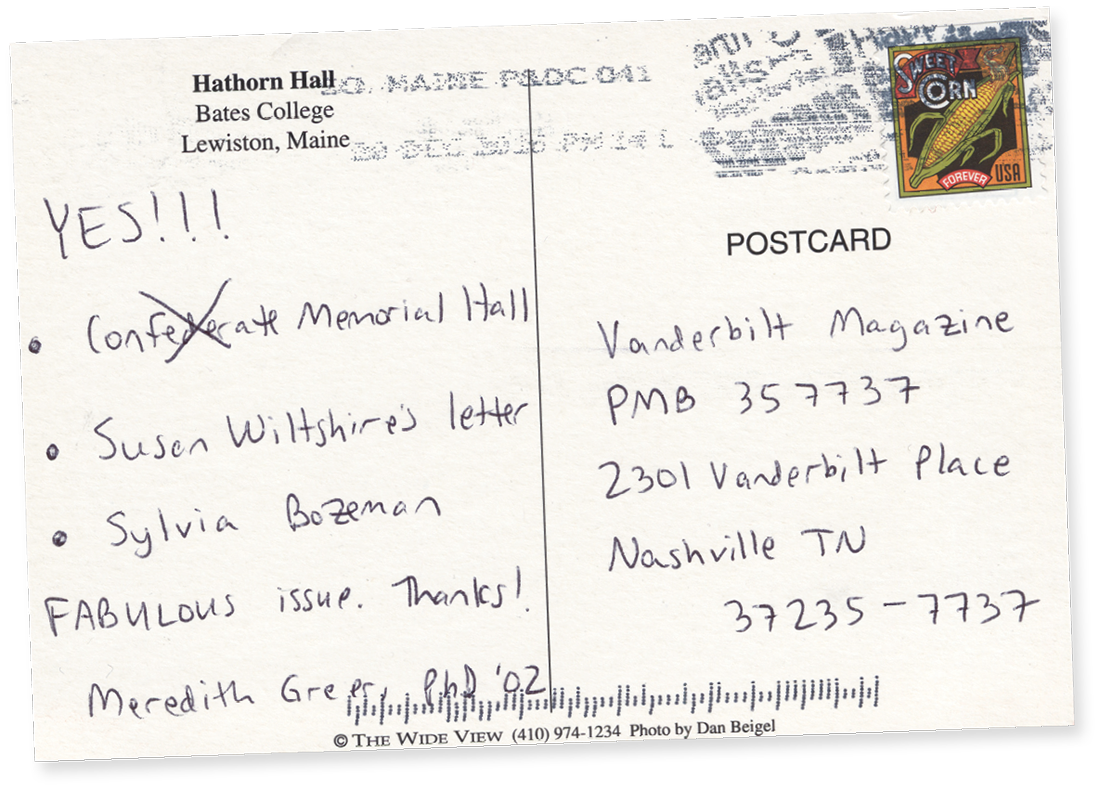 Hathorn Hall
Bates College
Lewiston, Maine
SO. MAINE P&DC 041
PM 14 L
SWEET
CORN
FOREVER
USA
YES!!!
• Confederate Memorial Hall
• Susan Wiltshire's letter
• Sylvia Bozeman
FABULOUS issue. Thanks!
Meredith Greer, PhD '02
POSTCARD
Vanderbilt Magazine
PMB 357737
2301 Vanderbilt Place
Nashville TN
37235-7737
© THE WIDE VIEW (410) 974-1234 Photo by Dan Beigel